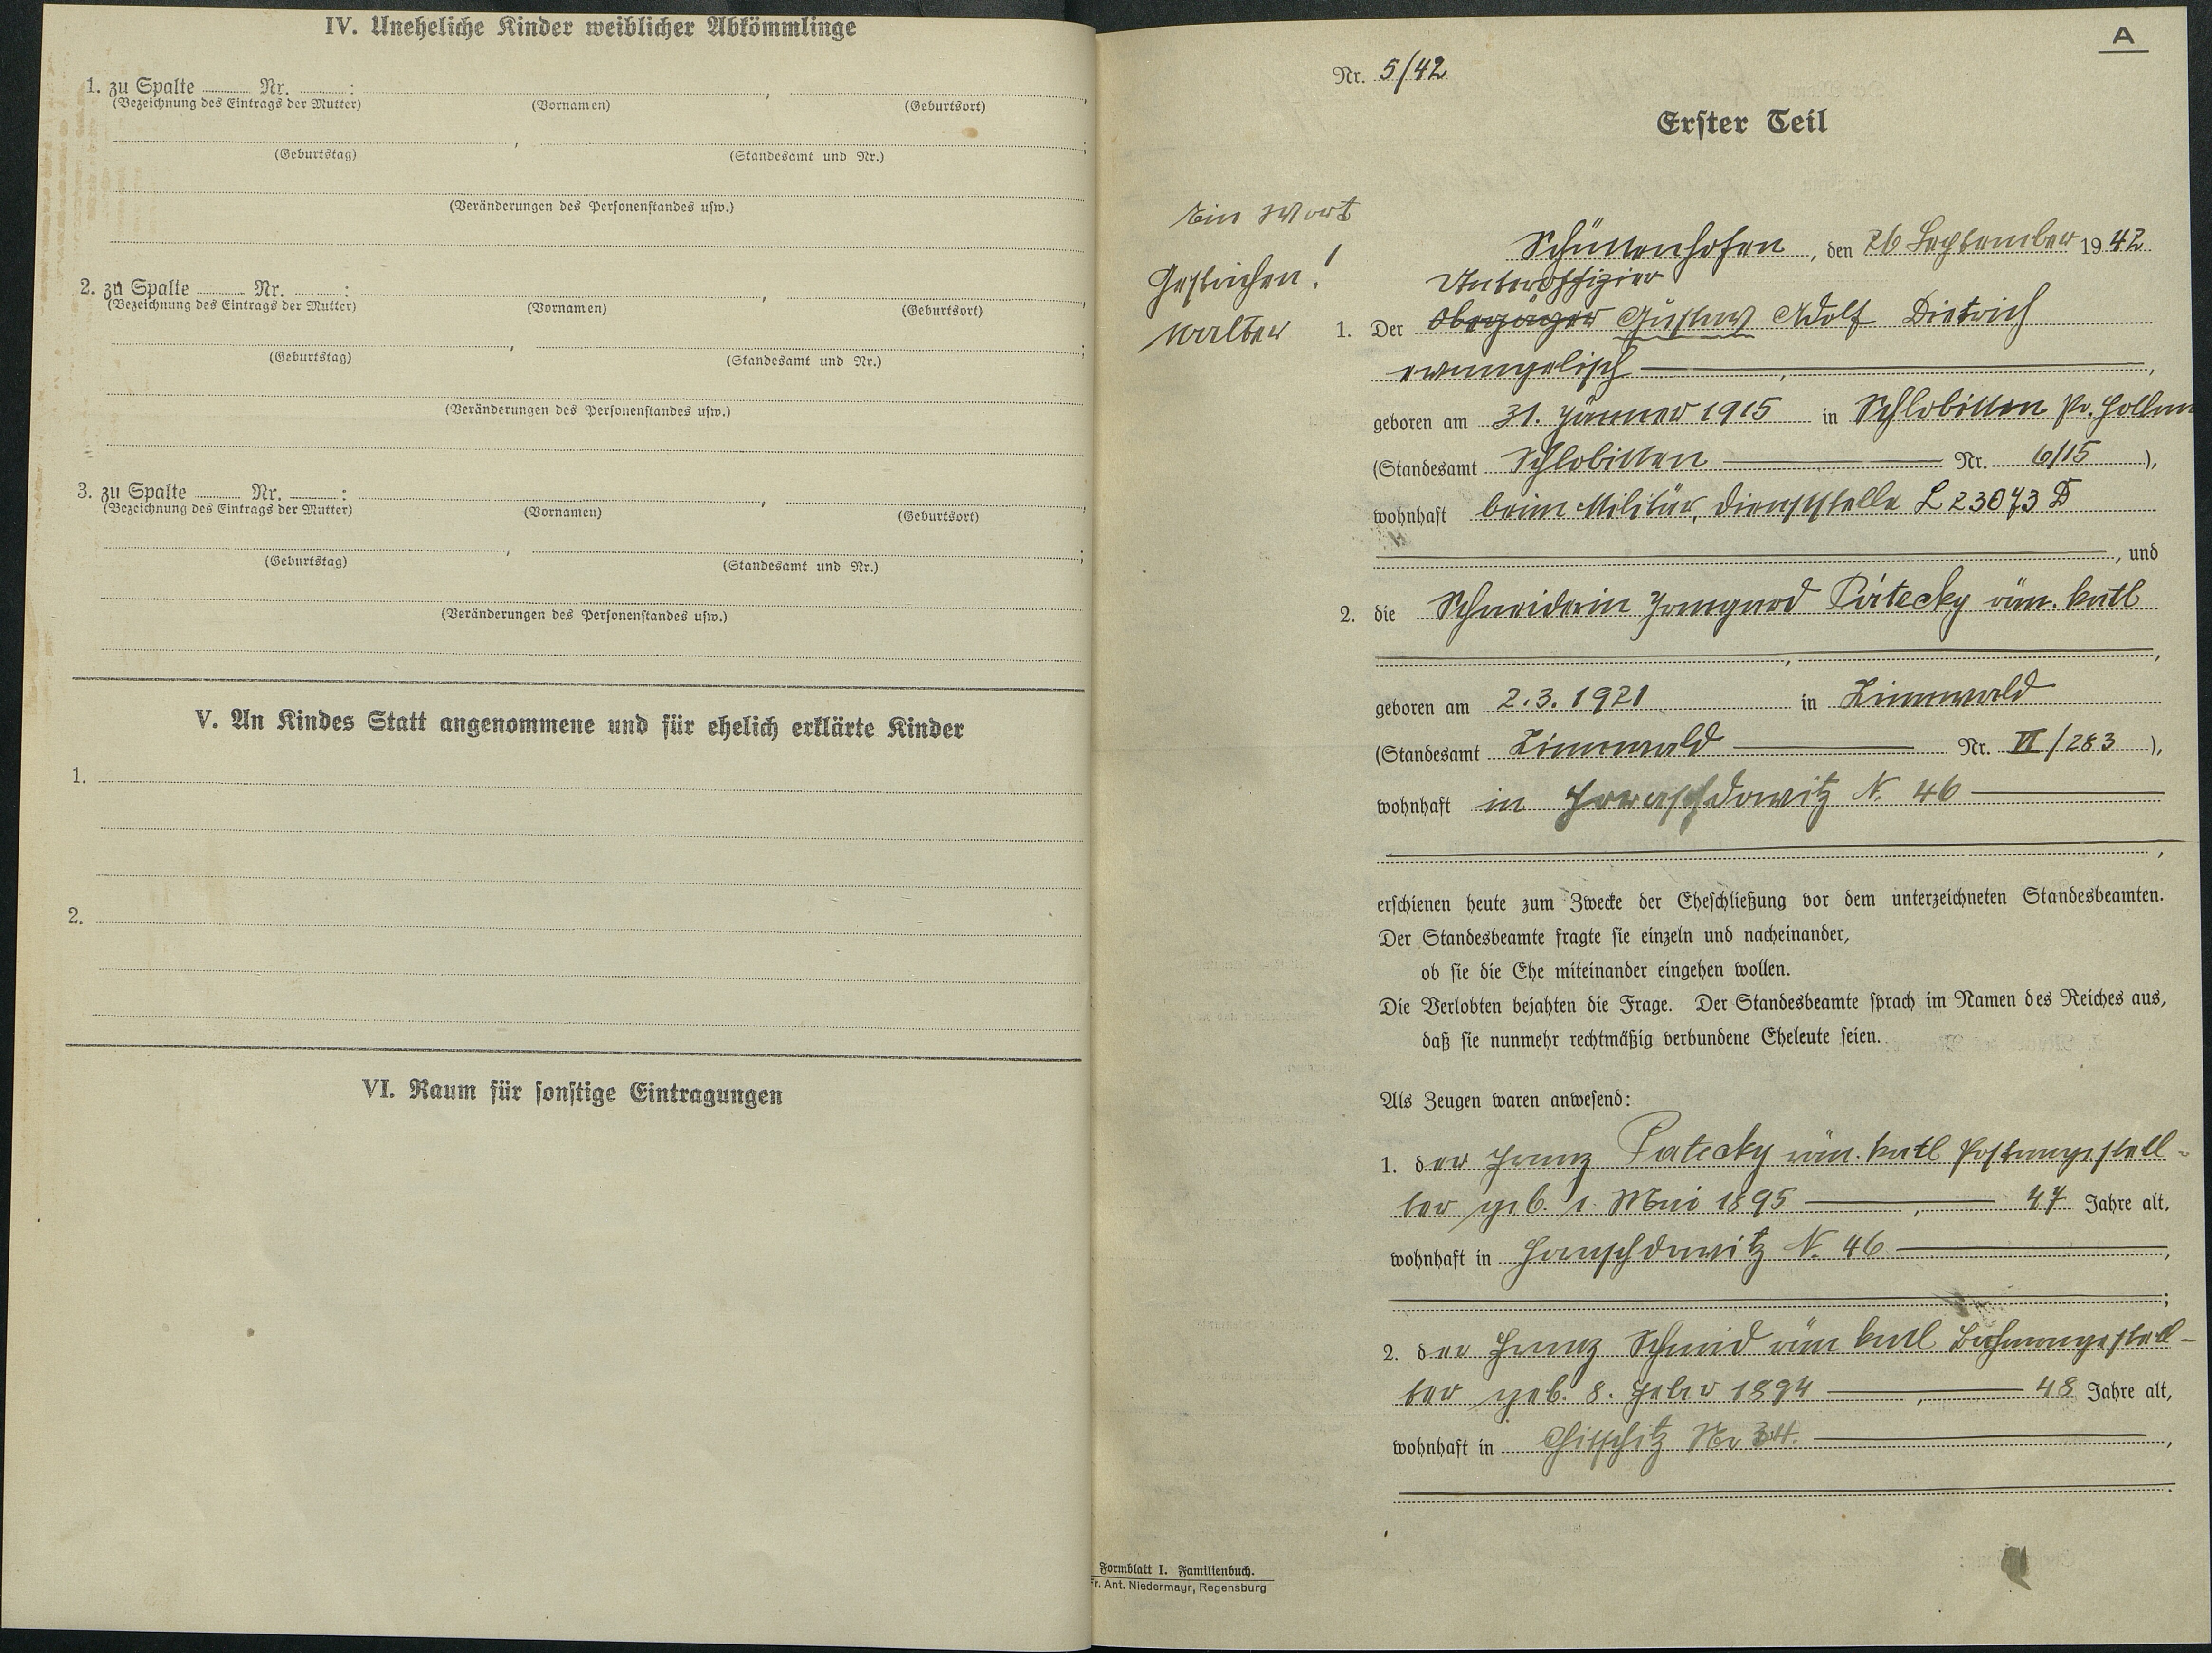 IV. Uneheliche Kinder weiblicher Abkömmlinge
1. zu Spalte ........ Nr. ........ :
(Bezeichnung des Eintrags der Mutter) (Vornamen) , (Geburtsort) ,
(Geburtstag) , (Standesamt und Nr.) ;
(Veränderungen des Personenstandes usw.)
2. zu Spalte ........ Nr. ........ :
(Bezeichnung des Eintrags der Mutter) (Vornamen) , (Geburtsort) ,
(Geburtstag) , (Standesamt und Nr.) ;
(Veränderungen des Personenstandes usw.)
3. zu Spalte ........ Nr. ........ :
(Bezeichnung des Eintrags der Mutter) (Vornamen) , (Geburtsort) ,
(Geburtstag) , (Standesamt und Nr.) ;
(Veränderungen des Personenstandes usw.)
V. An Kindes Statt angenommene und für ehelich erklärte Kinder
1.
2.
VI. Raum für sonstige Eintragungen
A
Nr. 5/42
Erster Teil
Ein Wort
Gestrichen!
Schüttenhofen, den 26 September 1942
Unteroffizier
1. Der Oberjäger Gustav Adolf Dietrich
evangelisch
geboren am 31. Jänner 1915 in Schlobitten Pr. Hollan
(Standesamt Schlobitten Nr. 6/15),
wohnhaft beim Militär, Dienststelle L 23073 D
, und
2. die Schneiderin Irmgard Pirtecky röm. katl
geboren am 2.3.1921 in Zinnwald
(Standesamt Zinnwald Nr. VI/283),
wohnhaft in Horaschdowitz N. 46
erschienen heute zum Zwecke der Eheschließung vor dem unterzeichneten Standesbeamten.
Der Standesbeamte fragte sie einzeln und nacheinander,
ob sie die Ehe miteinander eingehen wollen.
Die Verlobten bejahten die Frage. Der Standesbeamte sprach im Namen des Reiches aus,
daß sie nunmehr rechtmäßig verbundene Eheleute seien.
Als Zeugen waren anwesend:
1. der Franz röm. katl Postangestell-
ter geb. 1. Mai 1895, 47 Jahre alt,
wohnhaft in Horaschdowitz N. 46,
;
2. der Franz Schmid röm katl Bahnangestell-
ter geb. 8. Feber 1894, 48 Jahre alt,
wohnhaft in Nr 34.,
Formblatt I. Familienbuch.
Fr. Ant. Niedermayr, Regensburg